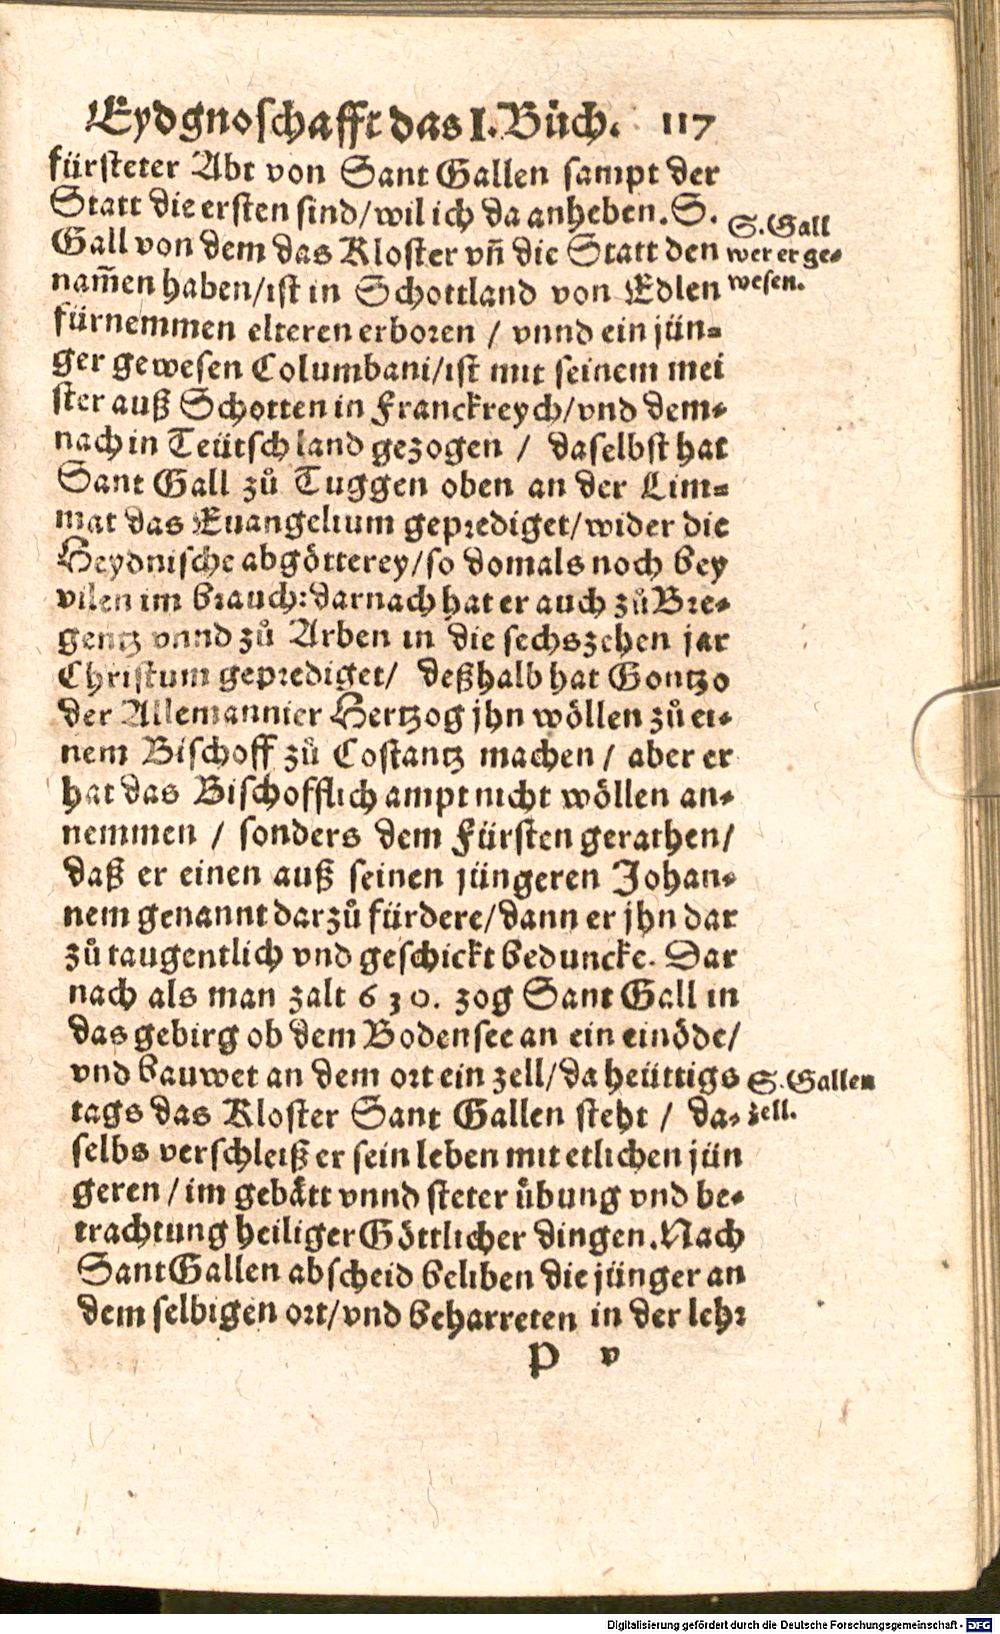 Eydgnoschafft das I. Bůch. 117
fürsteter Abt von Sant Gallen sampt der
Statt die ersten sind/wil ich da anheben. S.
S. Gall
Gall von dem das Kloster vñ die Statt den
wer er ge-
nam̃en haben/ist in Schottland von Edlen
wesen.
fürnemmen elteren erboren / vnnd ein jün-
ger gewesen Columbani/ist mit seinem mei
ster auß Schotten in Franckreych/vnd dem-
nach in Teütschland gezogen / daselbst hat
Sant Gall zů Tuggen oben an der Lim-
mat das Euangelium geprediget/wider die
Heydnische abgötterey/so domals noch bey
vilen im brauch: darnach hat er auch zů Bre-
gentz vnnd zů Arben in die sechszehen jar
Christum geprediget/ deßhalb hat Gontzo
der Allemannier Hertzog jhn wöllen zů ei-
nem Bischoff zů Costantz machen / aber er
hat das Bischofflich ampt nicht wöllen an-
nemmen / sonders dem Fürsten gerathen/
daß er einen auß seinen jüngeren Johan-
nem genannt darzů fürdere/dann er jhn dar
zů taugentlich vnd geschickt beduncke. Dar
nach als man zalt 630. zog Sant Gall in
das gebirg ob dem Bodensee an ein einöde/
vnd bauwet an dem ort ein zell/da heüttigs
S. Gallen
tags das Kloster Sant Gallen steht / da-
zell.
selbs verschleiß er sein leben mit etlichen jün
geren / im gebätt vnnd steter übung vnd be-
trachtung heiliger Göttlicher dingen. Nach
Sant Gallen abscheid beliben die jünger an
dem selbigen ort/vnd beharreten in der lehr
P v
Digitalisierung gefördert durch die Deutsche Forschungsgemeinschaft - DFG